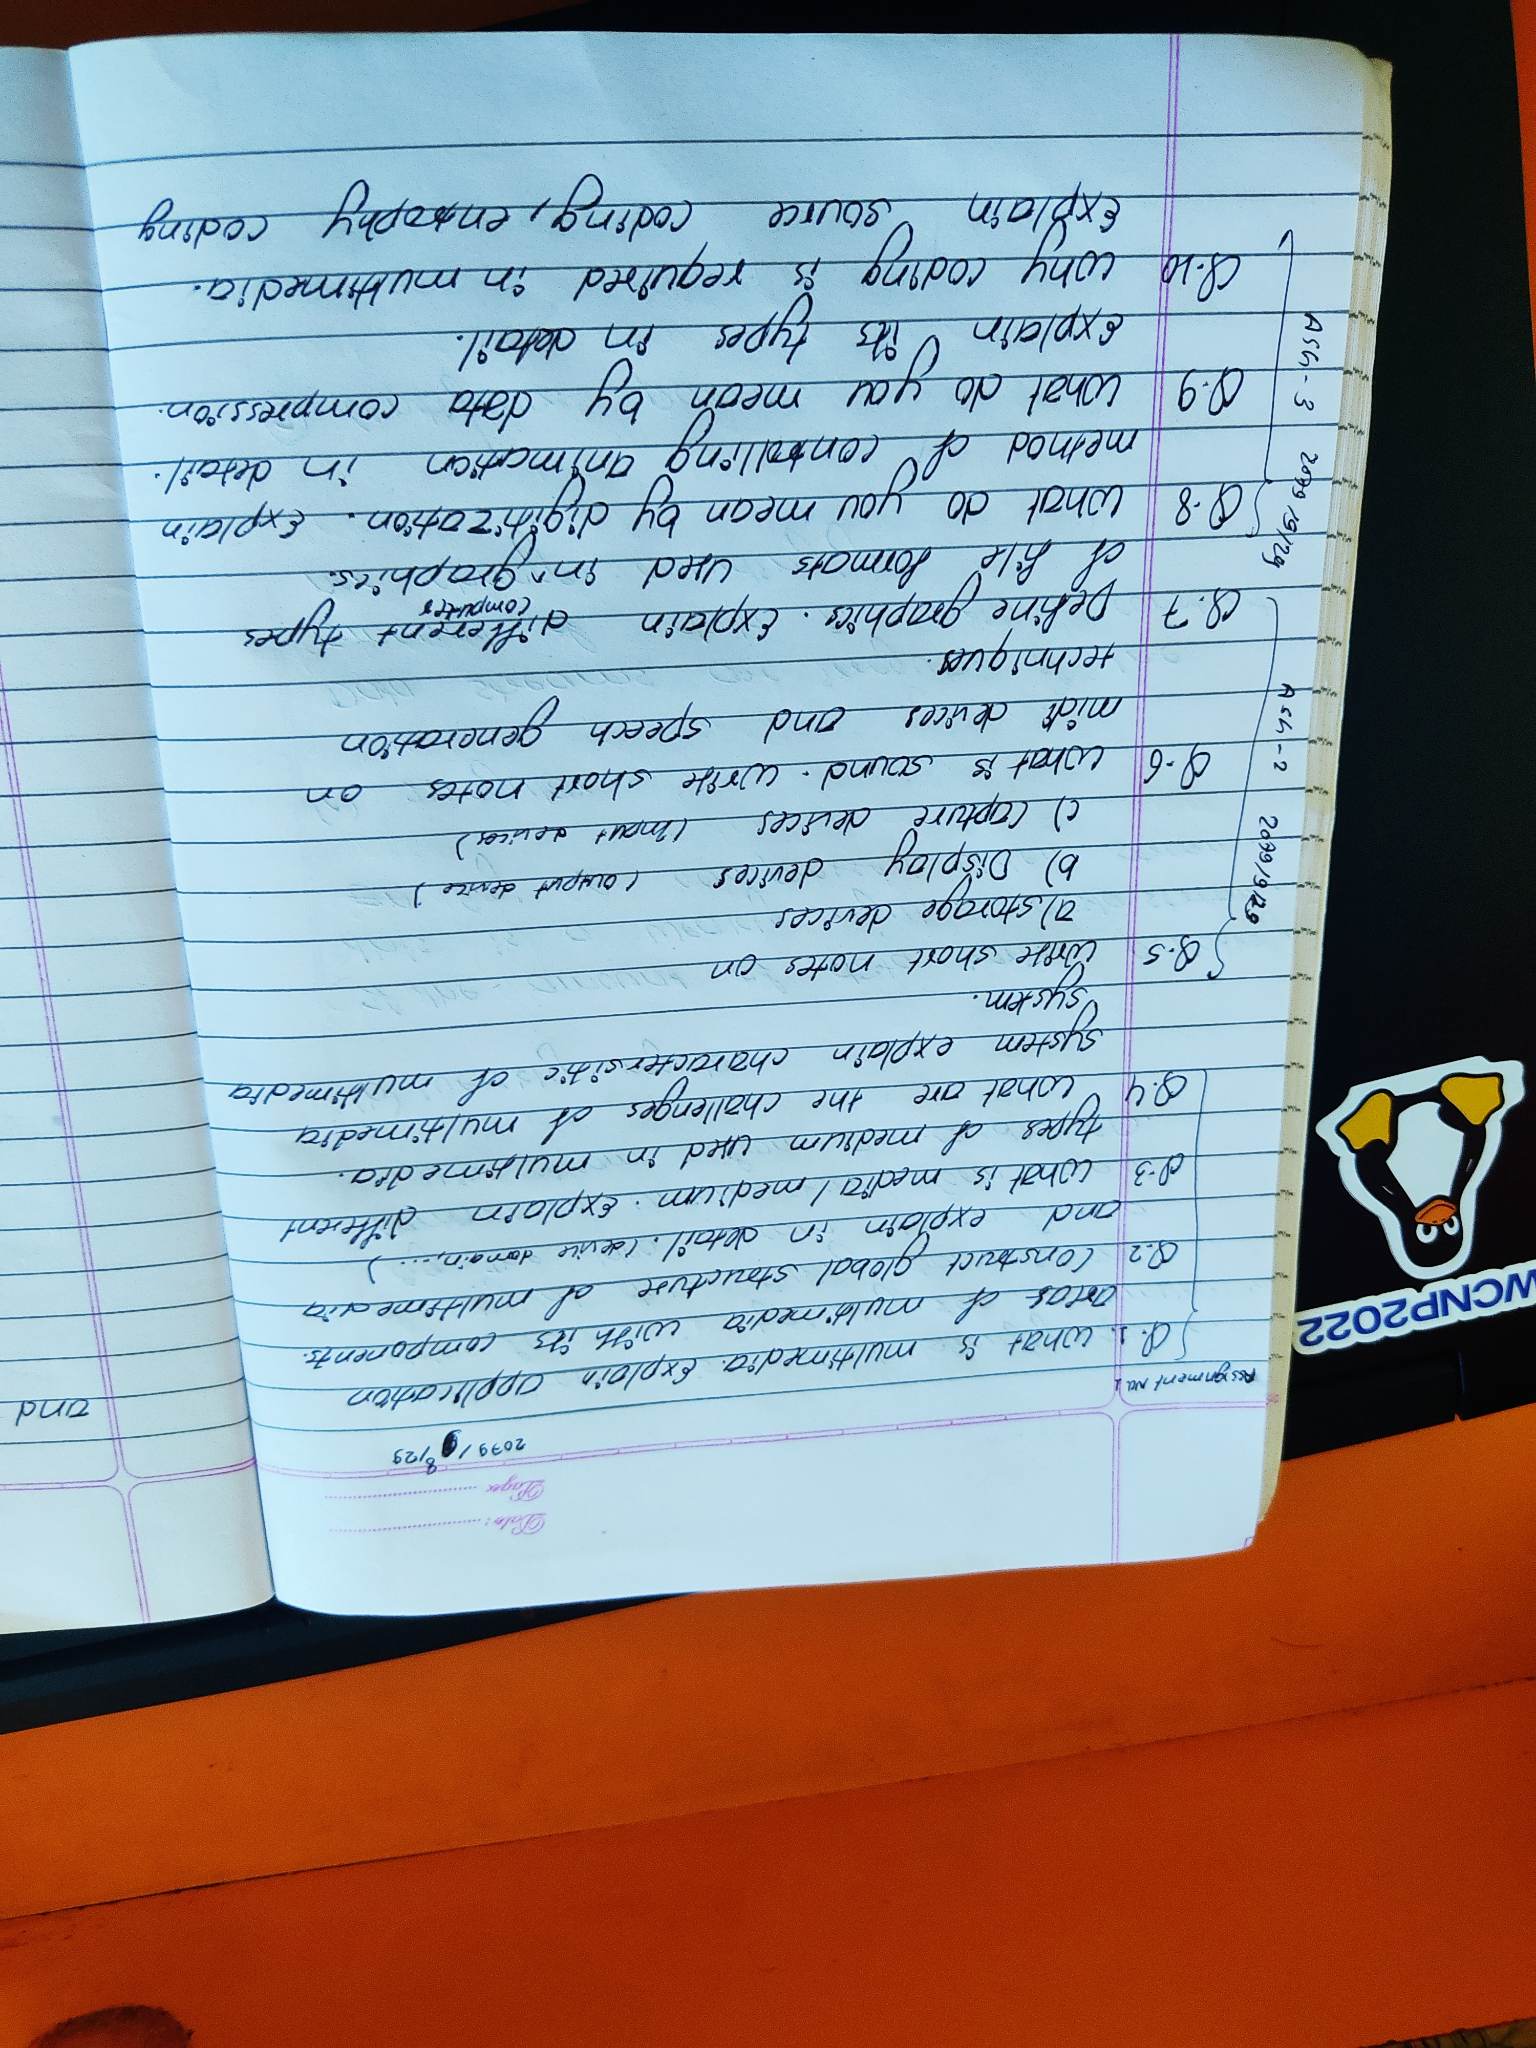 WCNP2022
Date:
Page:
2079/8/29
Assignment No. 1
Q.1. What is multimedia. Explain application
areas of multimedia with its components.
Q.2 Construct global structure of multimedia
and explain in detail. (device domain,...)
Q.3 What is media/medium. Explain different
types of medium used in multimedia.
Q.4 What are the challenges of multimedia
system explain charactersitic of multimedia
system.
Ash-2 2079/9/29
Q.5 Write short notes on
a) storage devices
b) Display devices (output device)
c) Capture devices (input devices)
Q.6 What is sound. Write short notes on
midi devices and speech generation
techniques.
Q.7 Define graphics. Explain different types
of file formats used in ^ computer graphics.
Ash-3 2079/9/29
Q.8 What do you mean by digitization. Explain
method of controlling animation in detail.
Q.9 What do you mean by data compression.
Explain its types in detail.
Q.10 Why coding is required in multimedia.
Explain source coding, entrophy coding
and